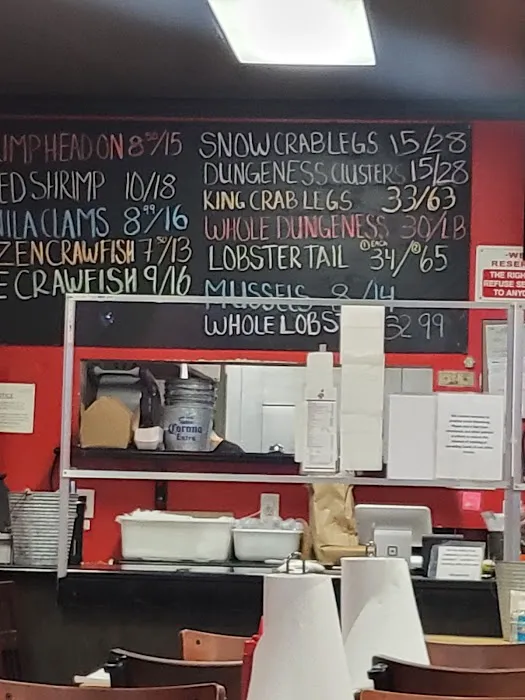 IMP HEAD ON 8⁵⁰/15
ED SHRIMP 10/18
ILA CLAMS 8⁹⁹/16
ZEN CRAWFISH 7⁵⁰/13
E CRAWFISH 9/16
SNOW CRAB LEGS 15/28
DUNGENESS CLUSTERS 15/28
KING CRAB LEGS 33/63
WHOLE DUNGENESS 30/LB
LOBSTER TAIL ① EACH 34/② 65
MUSSELS 8/14
WHOLE LOBS 32 99
-WE
RESER
THE RIGH
REFUSE SE
TO ANYO
Corona
Extra